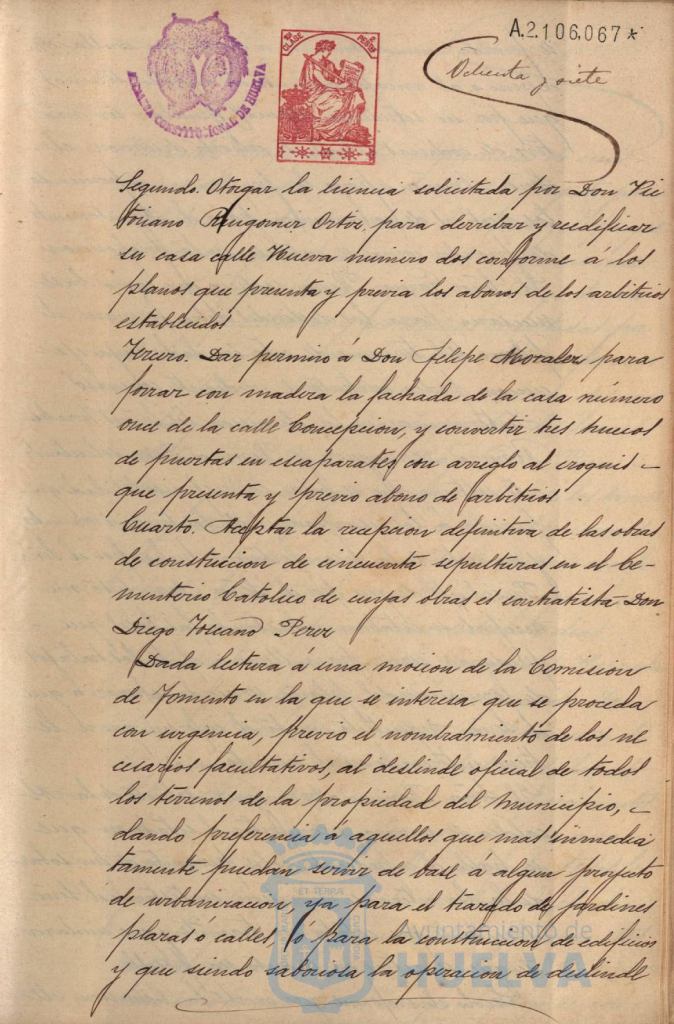 A.2.106.067*
ALCALDIA CONSTITUCIONAL DE HUELVA
CLASE
Ochenta y siete
Segundo. Otorgar la licencia solicitada por Don Vic
toriano Ortiz, para derribar y reedificar
su casa calle Nueva número dos conforme á los
planos que presenta y previa los abonos de los arbitrios
establecidos
Tercero. Dar permiso á Don Felipe Morales para
forrar con madera la fachada de la casa número
once de la calle Concepcion, y convertir tres huecos
de puertas en escaparates con arreglo al croquis -
que presenta y previo abono de arbitrios.
Cuarto. Aceptar la recepcion definitiva de las obras
de construccion de cincuenta sepulturas en el Ce-
menterio Catolico de cuyas obras es contratista Don
Diego Toscano Perez
Dada lectura á una mocion de la Comision
de Fomento en la que se interesa que se proceda
con urgencia, previo el nombramiento de los ne
cesarios facultativos, al deslinde oficial de todos
los terrenos de la propiedad del Municipio, -
dando preferencia á aquellos que mas inmedia
tamente puedan servir de base á algun proyecto
de urbanizacion, ya para el trazado de jardines
plazas ó calles, ó para la construccion de edificios
y que siendo laboriosa la operacion de deslinde
Ayuntamiento de
HUELVA